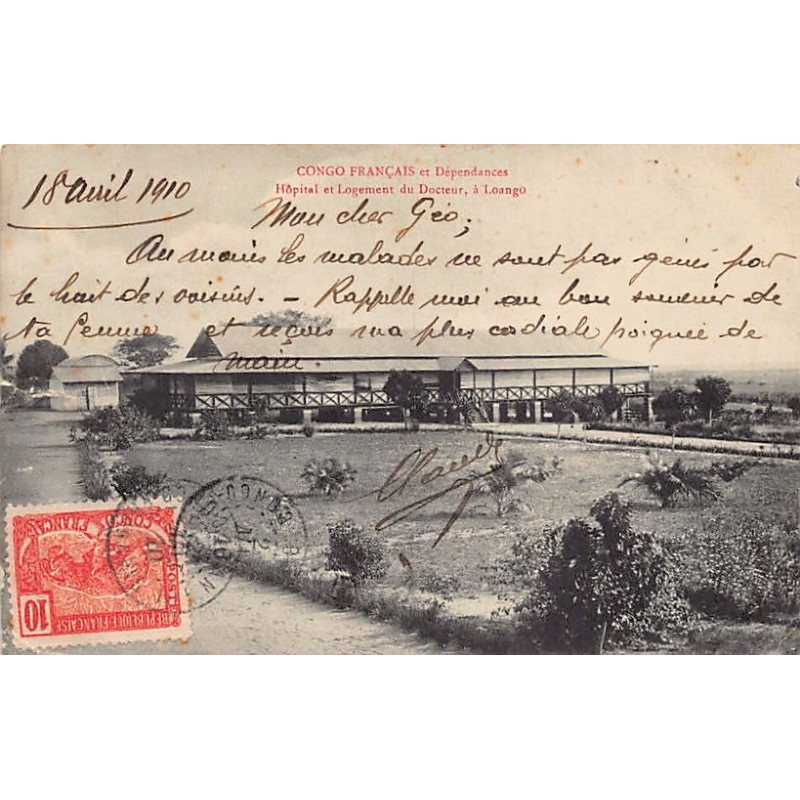 CONGO FRANÇAIS et Dépendances
Hôpital et Logement du Docteur, à Loango
18 avril 1910
Mon cher Géo,
Au moins les malades ne sont pas génés par
le bait des voisins. - Rappelle moi au bon souvenir de
ta femme et reçois ma plus cordiale poignée de
main.
CONGO FRANÇAIS
POSTES
10
RÉPUBLIQUE FRANÇAISE